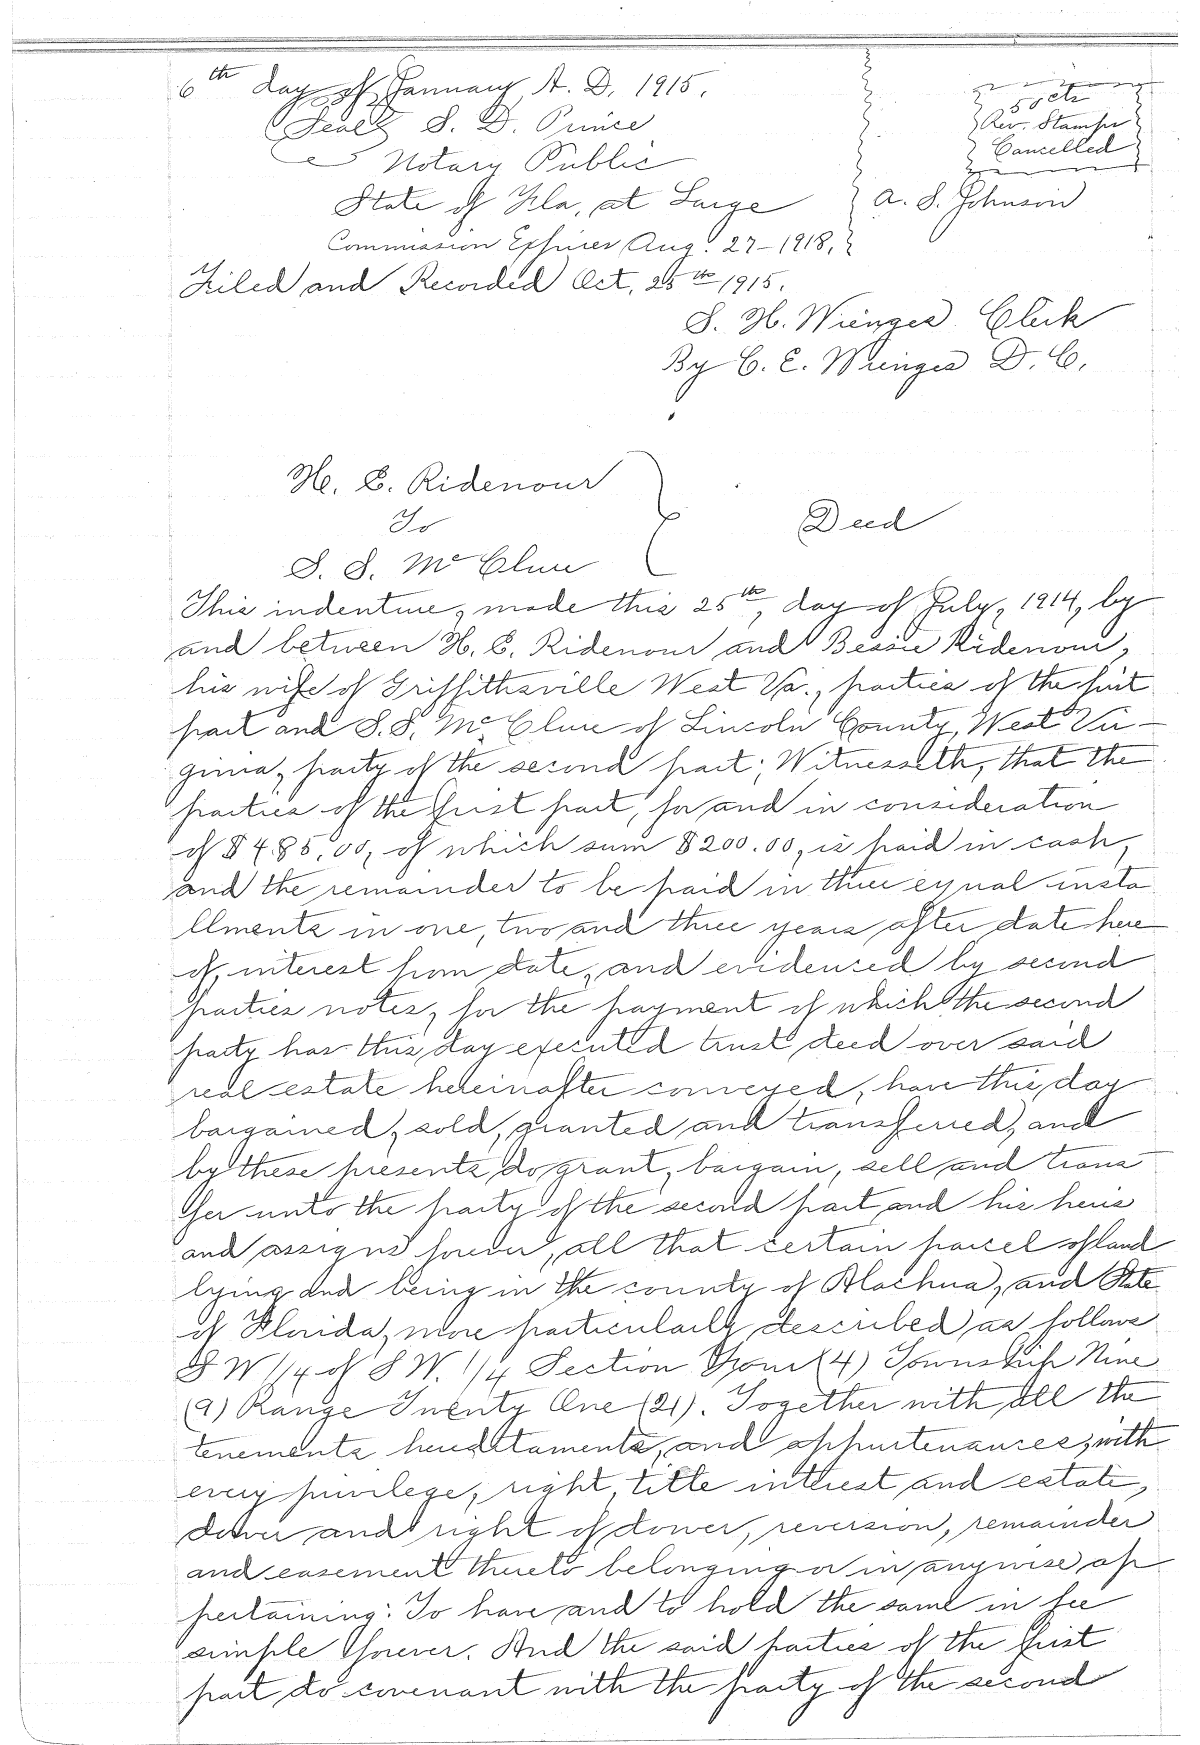 6th day of January, A. D. 1915.
50 cts
Rev. Stamps
Cancelled
(Seal) S. D. Prince
Notary Public
State of Fla, at Large
A. S. Johnson
Commission Expires Aug. 27-1918.
Filed and Recorded Oct. 25th 1915.
S. H. Wienges Clerk
By C. E. Wienges D. C.
H. E. Ridenour
To
Deed
S. S. McClure
This indenture, made this 25th, day of July, 1914, by
and between H. E. Ridenour and Bessie Ridenour,
his wife of Griffithsville West Va., parties of the first
part and S. S. McClure of Lincoln County, West Vir-
ginia, party of the second part; Witnesseth, that the
parties of the first part, for and in consideration
of $485.00, of which sum $200.00, is paid in cash,
and the remainder to be paid in three equal insta
llments in one, two and three years after date here
of, interest from date, and evidenced by second
parties notes, for the payment of which the second
party has this day executed trust deed over said
real estate hereinafter conveyed, have this day
bargained, sold, granted and transferred, and
by these presents, do grant, bargain, sell and trans
fer unto the party of the second part, and his heirs
and assigns forever, all that certain parcel of land
lying and being in the county of Alachua, and State
of Florida, more particularly described as follows
S W 1/4 of S W. 1/4 Section Four (4) Township Nine
(9) Range Twenty One (21). Together with all the
tenements hereditaments, and appurtenances, with
every privilege, right, title interest and estate,
dower and right of dower, reversion, remainder
and easement thereto belonging or in anywise ap
pertaining: To have and to hold the same in fee
simple forever. And the said parties of the first
part, do covenant with the party of the second